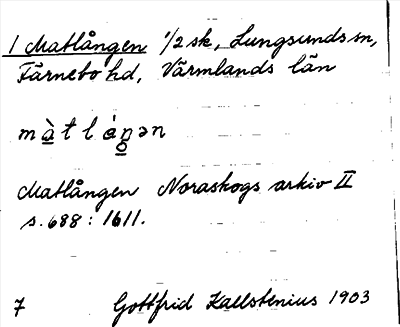 1 Matlången 1/2 sk, Lungsunds sn,
Färnebo hd, Värmlands län
Matlången Noraskogs arkiv II
s. 688: 1611.
7 Gottfrid Kallstenius 1903